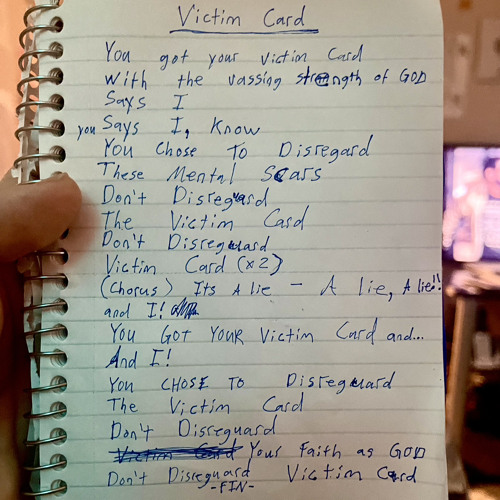 Victim Card
You got your victim Card
with the vassing strength of GOD
Says I
you Says I, Know
You Chose To Disregard
These Mental Scars
Don't Disregard
The Victim Card
Don't Disreguard
Victim Card (x2)
(Chorus) Its A lie - A lie, A lie!!
and I!
You GOT YOUR Victim Card and...
And I!
You CHOSE TO Disreguard
The Victim Card
Don't Disreguard
Victim Card Your Faith as GOD
Don't Disreguard Victim Card
-FIN-